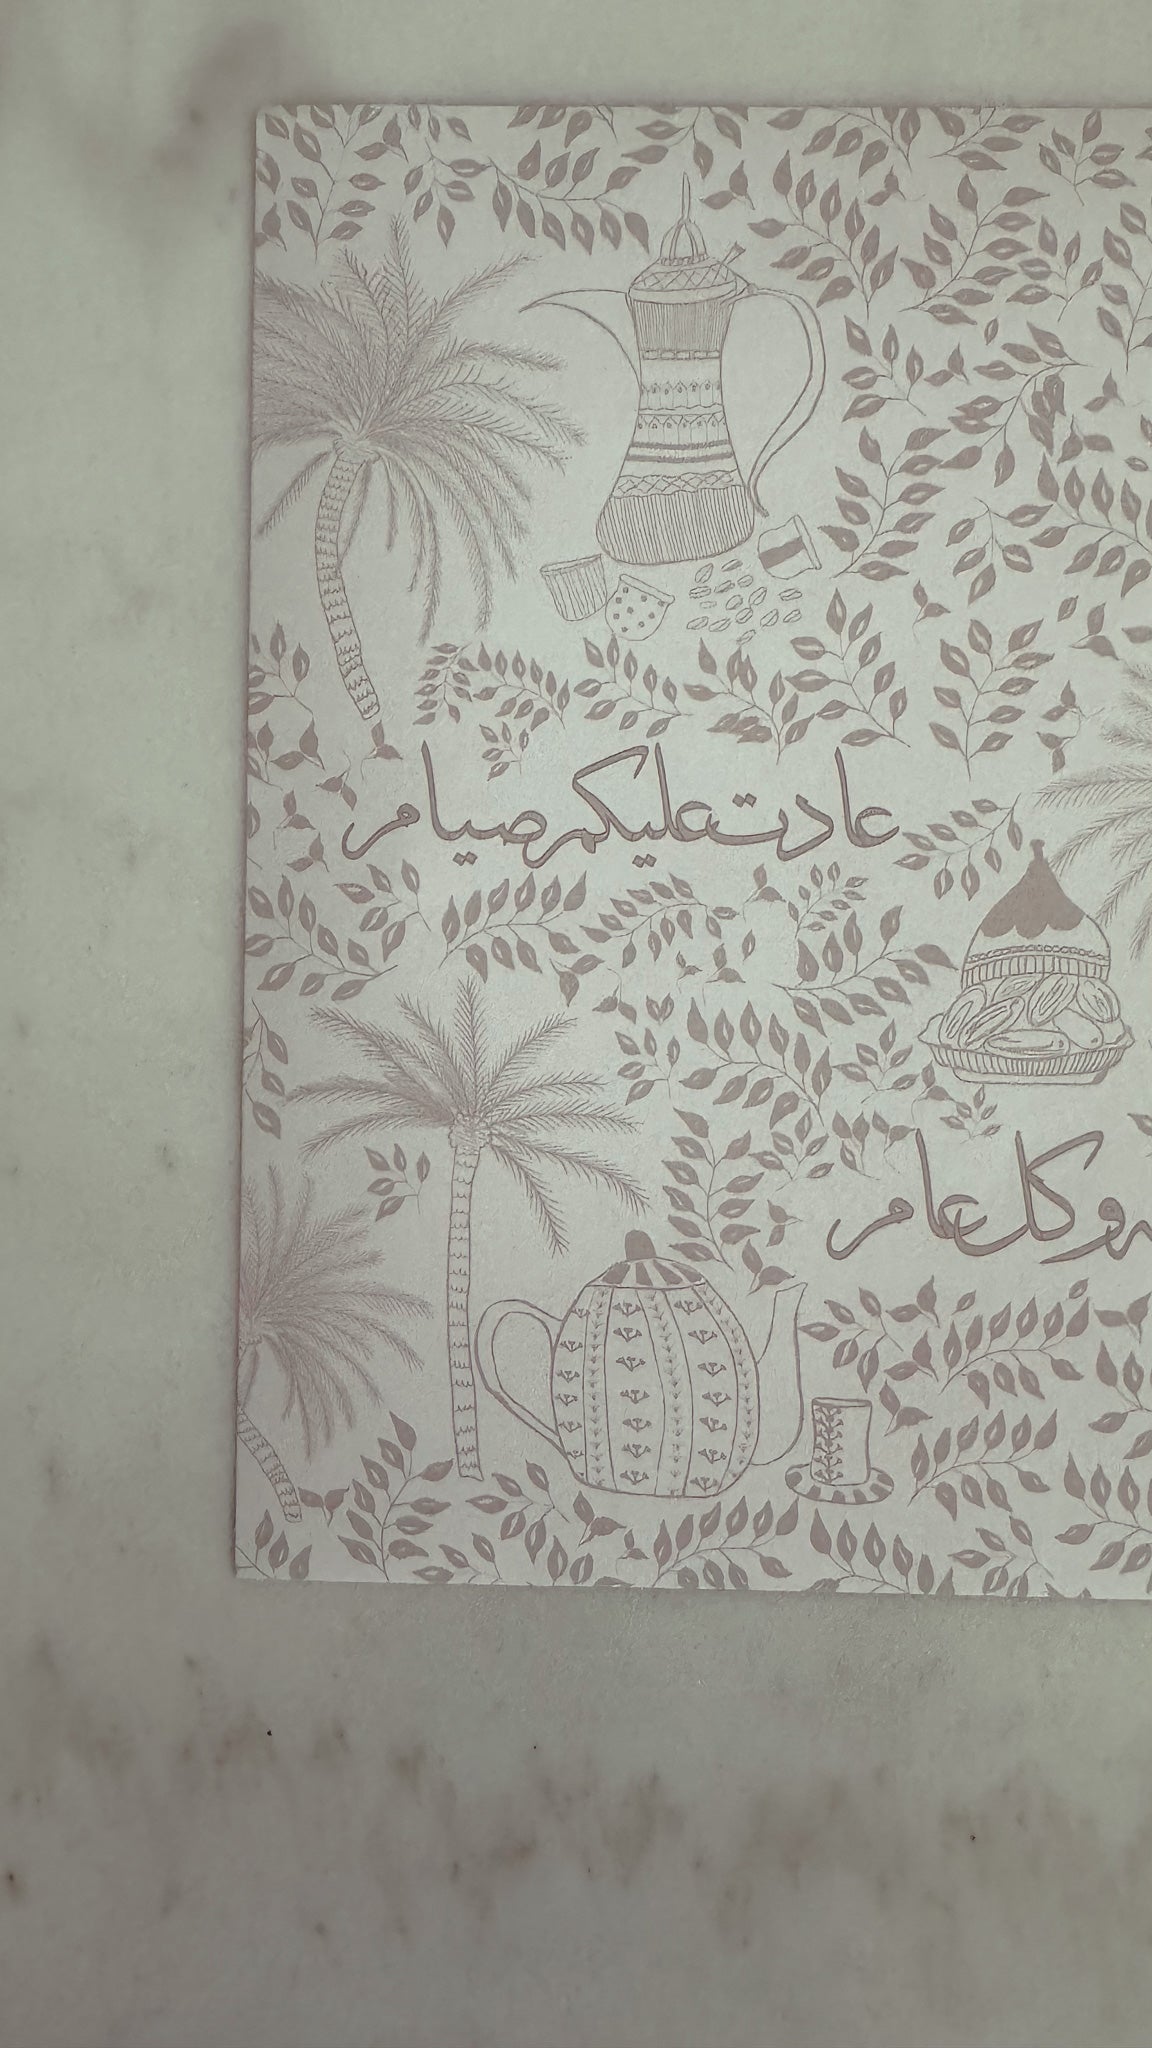 عادت عليكم صيام
وكل عام